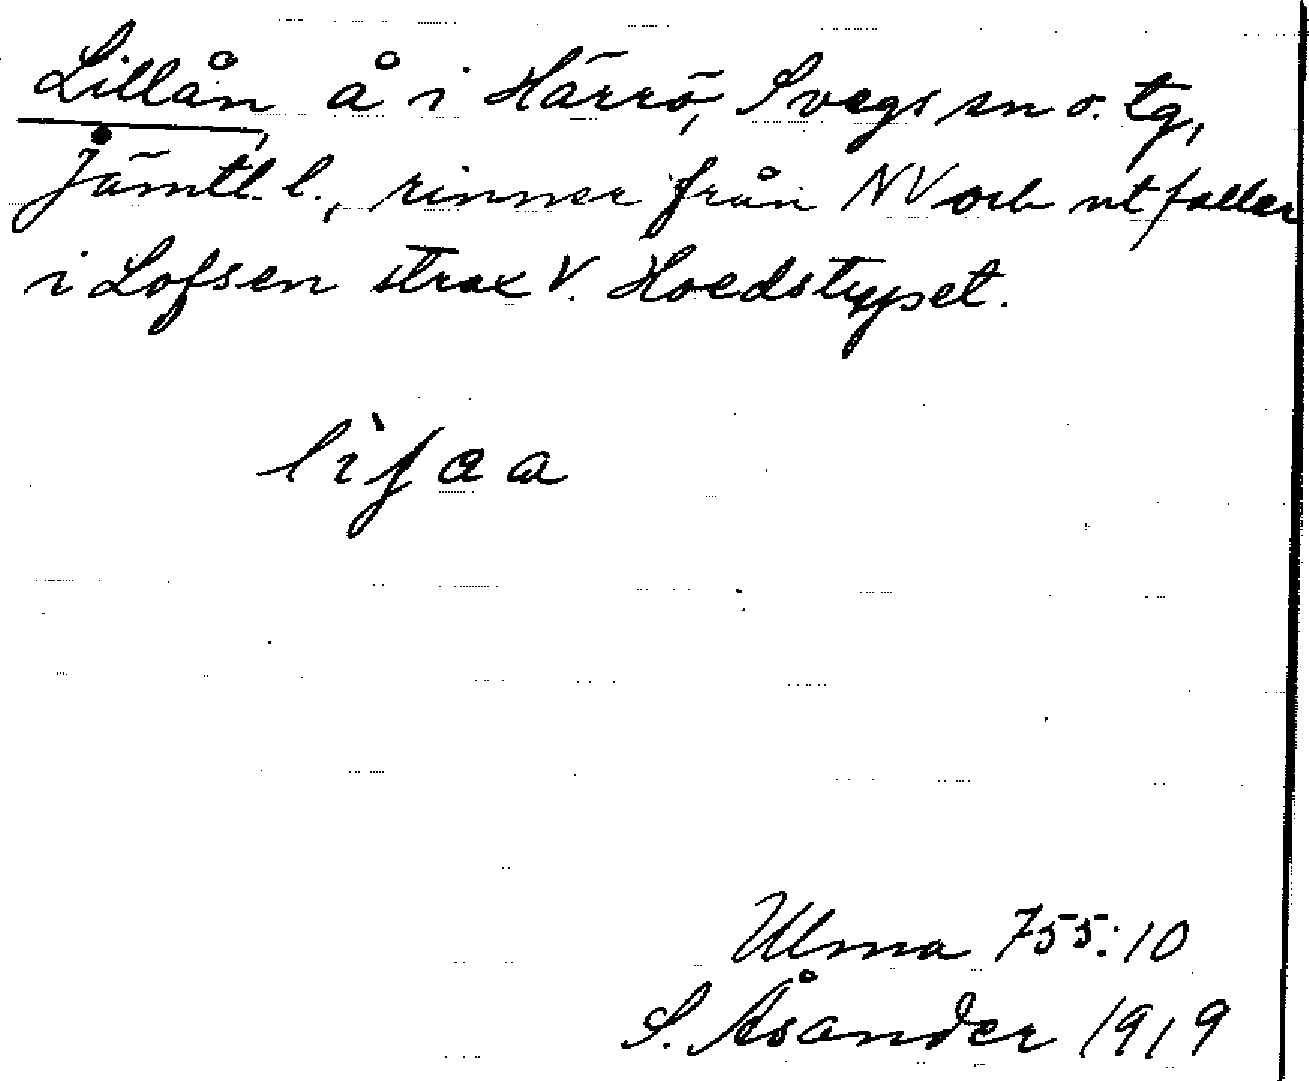 Lillån, å i Härrö, Svegs sn o. tg,
Jämtl. l., rinner från NV och utfaller
i Lofsen strax V. Hoedstypset.
Ulma 755:10
S. Åsander 1919